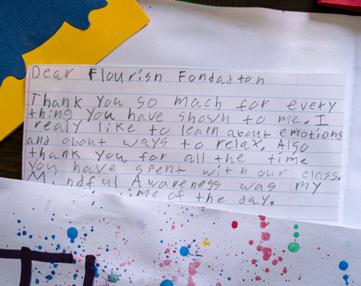 Dear Flourish Fondaston
Thank you so mach for every
thing you have shown to me. I
realy like to learn about emotions
and about ways to relax, Also
thank you for all the time
you have spent with our class.
Mindful Awareness was my
ime of the day.